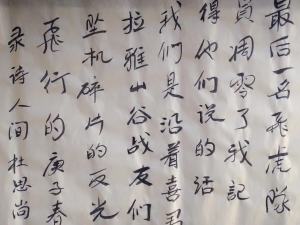 最后一名飞虎队
员凋零了我记
得他们说的话
我们是沿着喜马
拉雅山谷战友们
坠机碎片的反光
飞行的庚子春
录诗人间杜思尚